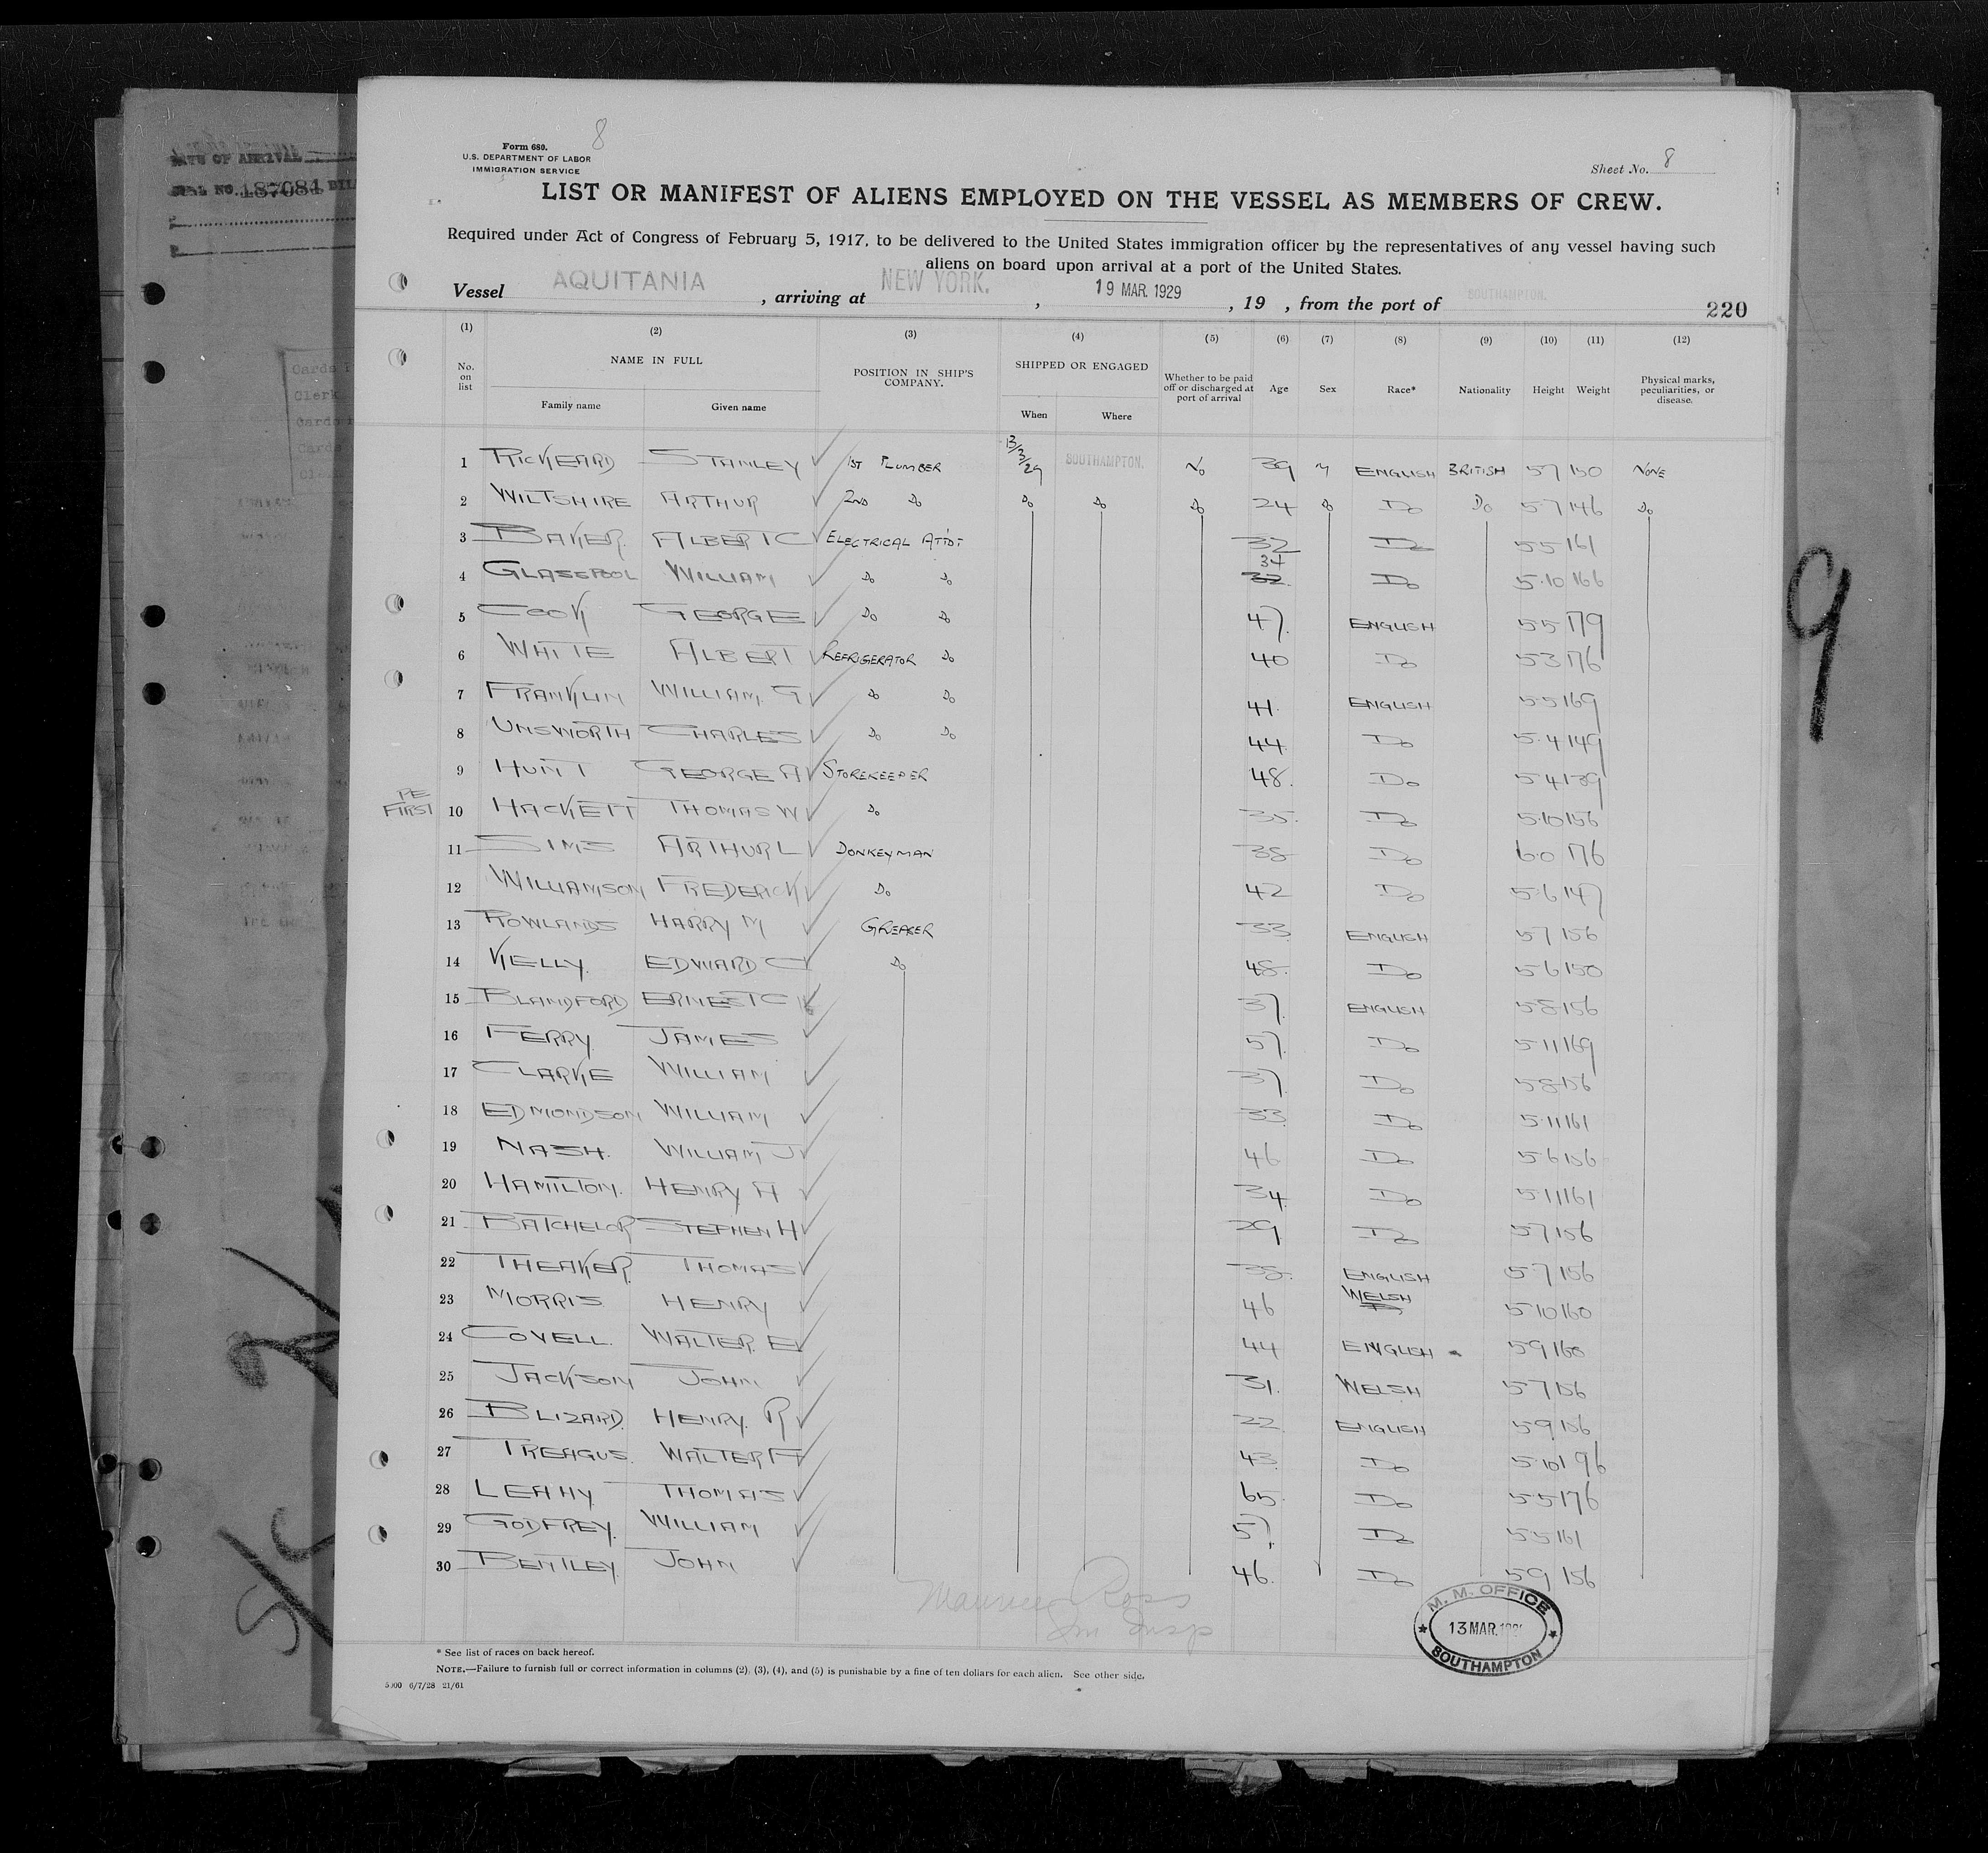 8
Form 680.
U.S. DEPARTMENT OF LABOR
IMMIGRATION SERVICE
Sheet No. 8
LIST OR MANIFEST OF ALIENS EMPLOYED ON THE VESSEL AS MEMBERS OF CREW.
Required under Act of Congress of February 5, 1917, to be delivered to the United States immigration officer by the representatives of any vessel having such
aliens on board upon arrival at a port of the United States.
Vessel AQUITANIA, arriving at NEW YORK., 19 MAR. 1929, 19 , from the port of SOUTHAMPTON.
220
(1) (2) (3) (4) (5) (6) (7) (8) (9) (10) (11) (12)
No. on list NAME IN FULL Family name Given name POSITION IN SHIP'S COMPANY. SHIPPED OR ENGAGED When Where Whether to be paid off or discharged at port of arrival Age Sex Race* Nationality Height Weight Physical marks, peculiarities, or disease.
1 RICKEARD STANLEY 1ST PLUMBER 13/3/29 SOUTHAMPTON. No 39 M ENGLISH BRITISH 5 7 150 NONE
2 WILTSHIRE ARTHUR 2ND Do Do Do Do 24 Do Do Do 5 7 146 Do
3 BAKER. ALBERT C ELECTRICAL ATTDT 32 Do 5 5 161
4 GLASEPOOL WILLIAM Do Do 34 Do 5 10 166
5 COOK GEORGE Do Do 47. ENGLISH 5 5 179
6 WHITE ALBERT REFRIGERATOR Do 40 Do 5 3 176
7 FRANKLIN WILLIAM. G Do Do 41. ENGLISH 5 5 169
8 UNSWORTH CHARLES Do Do 44. Do 5 4 149
9 HUNT GEORGE A STOREKEEPER 48. Do 5 4 139
PE FIRST 10 HACKETT THOMAS W Do 35. Do 5 10 156
11 SIMS ARTHUR L DONKEYMAN 38 Do 6 0 176
12 WILLIAMSON FREDERICK Do 42 Do 5 6 147
13 ROWLANDS HARRY M GREASER 33 ENGLISH 5 7 156
14 KELLY. EDWARD C Do 48. Do 5 6 150
15 BLANDFORD ERNEST C 37. ENGLISH 5 8 156
16 FERRY JAMES 57. Do 5 11 169
17 CLARKE WILLIAM 37. Do 5 8 156
18 EDMONDSON WILLIAM 33 Do 5 11 161
19 NASH. WILLIAM J 46 Do 5 6 156
20 HAMILTON. HENRY A 34. Do 5 11 161
21 BATCHELOR STEPHEN H 29 Do 5 7 156
22 THEAKER. THOMAS 38. ENGLISH 5 7 156
23 MORRIS HENRY 46 WELSH 5 10 160
24 COVELL. WALTER. E 44 ENGLISH 5 9 160
25 JACKSON JOHN 31. WELSH 5 7 156
26 BLIZARD. HENRY. R 22 ENGLISH 5 9 156
27 TREAGUS. WALTER A 43. Do 5 10 196
28 LEAHY THOMAS 65. Do 5 5 176
29 GODFREY. WILLIAM 57. Do 5 5 161
30 BENTLEY. JOHN 46. Do 5 9 156
Maurice Ross
Im Insp
M. M. OFFICE
13 MAR.
SOUTHAMPTON
* See list of races on back hereof.
NOTE.—Failure to furnish full or correct information in columns (2), (3), (4), and (5) is punishable by a fine of ten dollars for each alien. See other side.
5000 6/7/28 21/61
DATE OF ARRIVAL
NO. 187084
Cards
Clerk
Cards
Cards
9